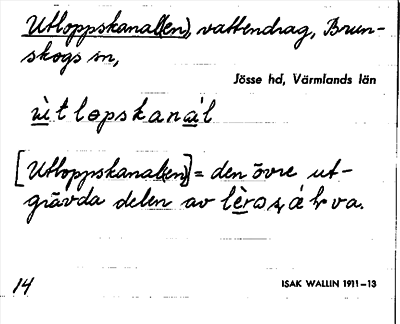 Utloppskanal(en), vattendrag, Brun-
skogs sn,
Jösse hd, Värmlands län
ùtlopskanál
[Utloppskanal(en)] = den övre ut-
grävda delen av
ISAK WALLIN 1911-13
14